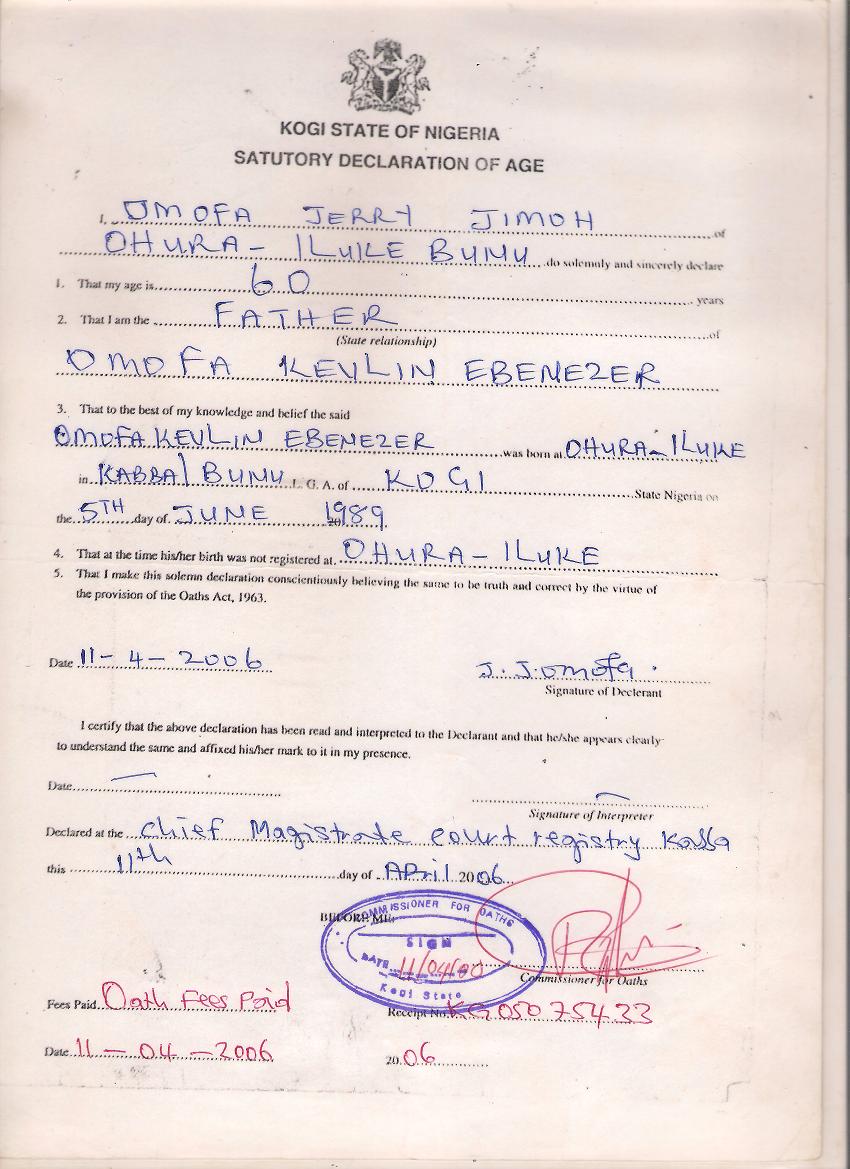 KOGI STATE OF NIGERIA
SATUTORY DECLARATION OF AGE
I, OMOFA JERRY JIMOH of
OHURA - ILUKE BUNU do solemnly and sincerely declare
1. That my age is 60 years
2. That I am the FATHER of
(State relationship)
OMOFA KEVLIN EBENEZER
3. That to the best of my knowledge and belief the said
OMOFA KEVLIN EBENEZER was born at OHURA - ILUKE
in KABBA/BUNU L.G.A. of KOGI State Nigeria on
the 5TH day of JUNE 1989
4. That at the time his/her birth was not registered at OHURA - ILUKE
5. That I make this solemn declaration conscientiously believing the same to be truth and correct by the virtue of
the provision of the Oaths Act, 1963.
Date 11 - 4 - 2006 J. J. Omofa
Signature of Declerant
I certify that the above declaration has been read and interpreted to the Declarant and that he/she appears clearly
to understand the same and affixed his/her mark to it in my presence.
Date
Signature of Interpreter
Declared at the Chief Magistrate court registry Kabba
this 11th day of April 2006
BEFORE ME:
COMMISSIONER FOR OATHS
SIGN
DATE 11/04/
Kogi State
Commissioner for Oaths
Fees Paid Oath Fees Paid Receipt No. KG 050 75433
Date 11 - 04 - 2006 2006